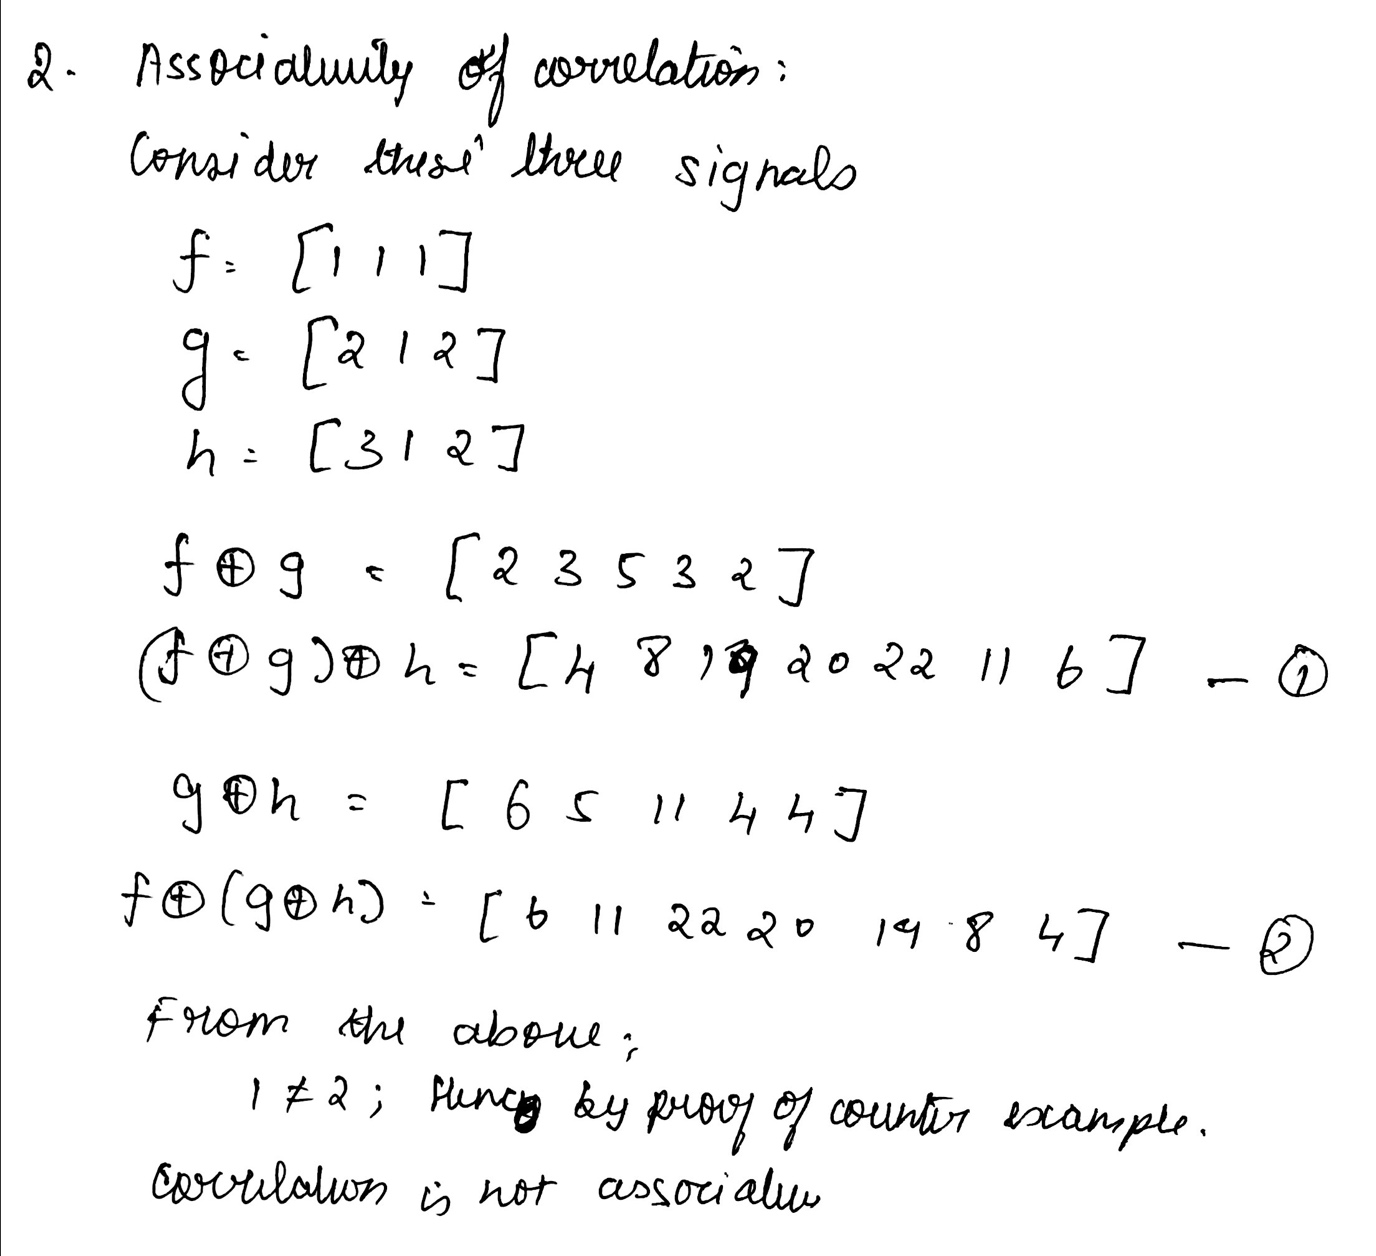 2. Associativity of correlation:
Consider these three signals
f = [1 1 1]
g = [2 1 2]
h = [3 1 2]
f ⊕ g = [2 3 5 3 2]
(f ⊕ g) ⊕ h = [4 8 19 20 22 11 6] - ①
g ⊕ h = [6 5 11 4 4]
f ⊕ (g ⊕ h) = [6 11 22 20 19 8 4] - ②
From the above;
1 ≠ 2; Hence by proof of counter example.
Correlation is not associative